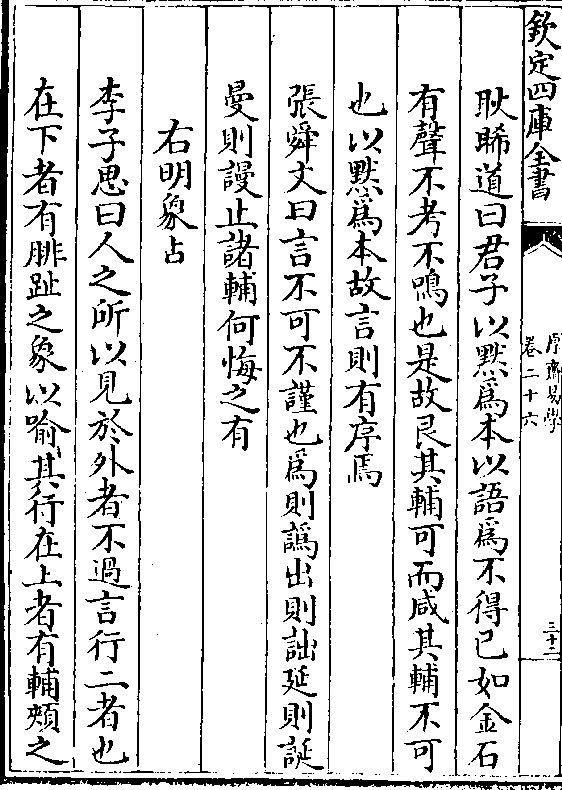 欽定四庫全書
厚齋易學
卷二十六
三十二
耿睎道曰君子以黙為本以語為不得已如金石
有聲不考不鳴也是故艮其輔可而咸其輔不可
也以黙為本故言則有序焉
張舜文曰言不可不謹也為則譌出則詘延則誕
曼則謾止諸輔何悔之有
右明象占
李子思曰人之所以見於外者不過言行二者也
在下者有腓趾之象以喻其行在上者有輔頰之